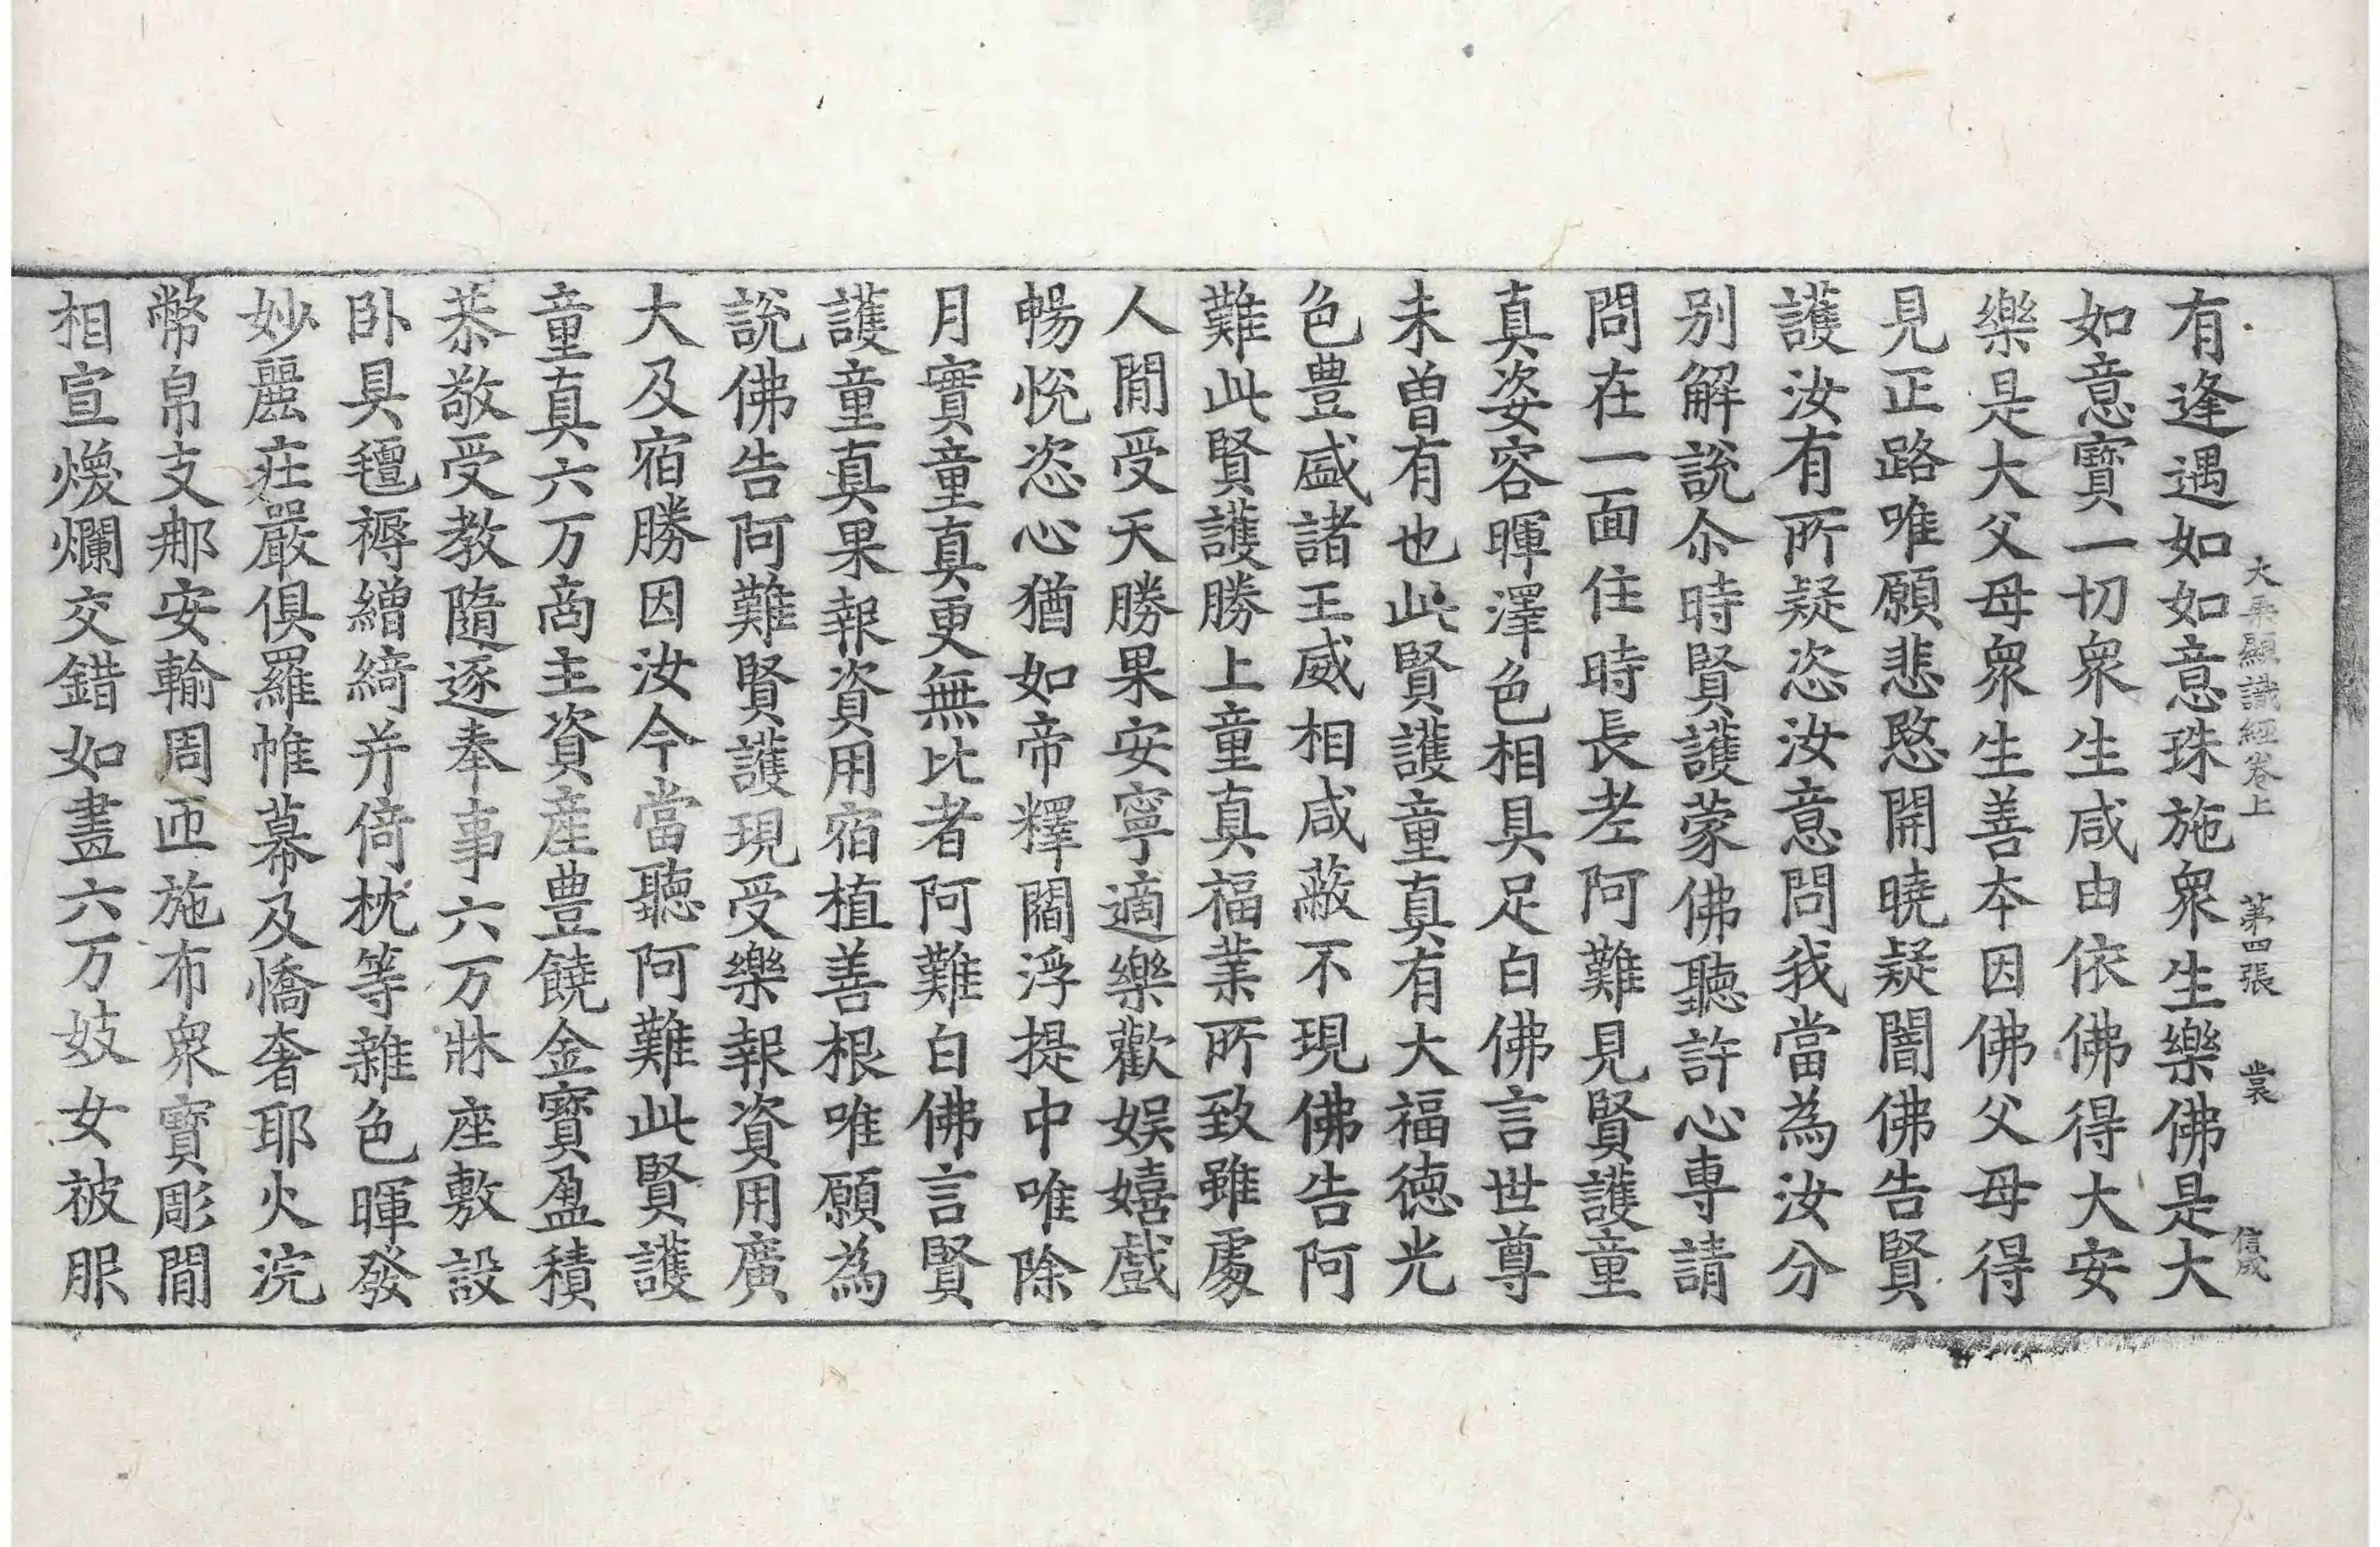 大乘顯識經卷上　第四張　裳　信成
有逢遇如如意珠施衆生樂佛是大
如意寶一切衆生咸由依佛得大安
樂是大父母衆生善本因佛父母得
見正路唯願悲愍開曉疑闇佛告賢
護汝有所疑恣汝意問我當為汝分
別解說尒時賢護蒙佛聽許心專請
問在一面住時長老阿難見賢護童
真姿容暉澤色相具足白佛言世尊
未曾有也此賢護童真有大福德光
色豊盛諸王威相咸蔽不現佛告阿
難此賢護勝上童真福業所致雖處
人閒受天勝果安寧適樂歡娛嬉戲
暢悅恣心猶如帝釋閻浮提中唯除
月實童真更無比者阿難白佛言賢
護童真果報資用宿植善根唯願為
說佛告阿難賢護現受樂報資用廣
大及宿勝因汝今當聽阿難此賢護
童真六万商主資產豊饒金寶盈積
恭敬受教隨逐奉事六万牀座敷設
卧具氊褥繒綺并倚枕等雜色暉發
妙麗莊嚴俱羅帷幕及憍奢耶火浣
幣帛支那安輸周匝施布衆寶彫閒
相宣煥爛交錯如畫六万妓女被服